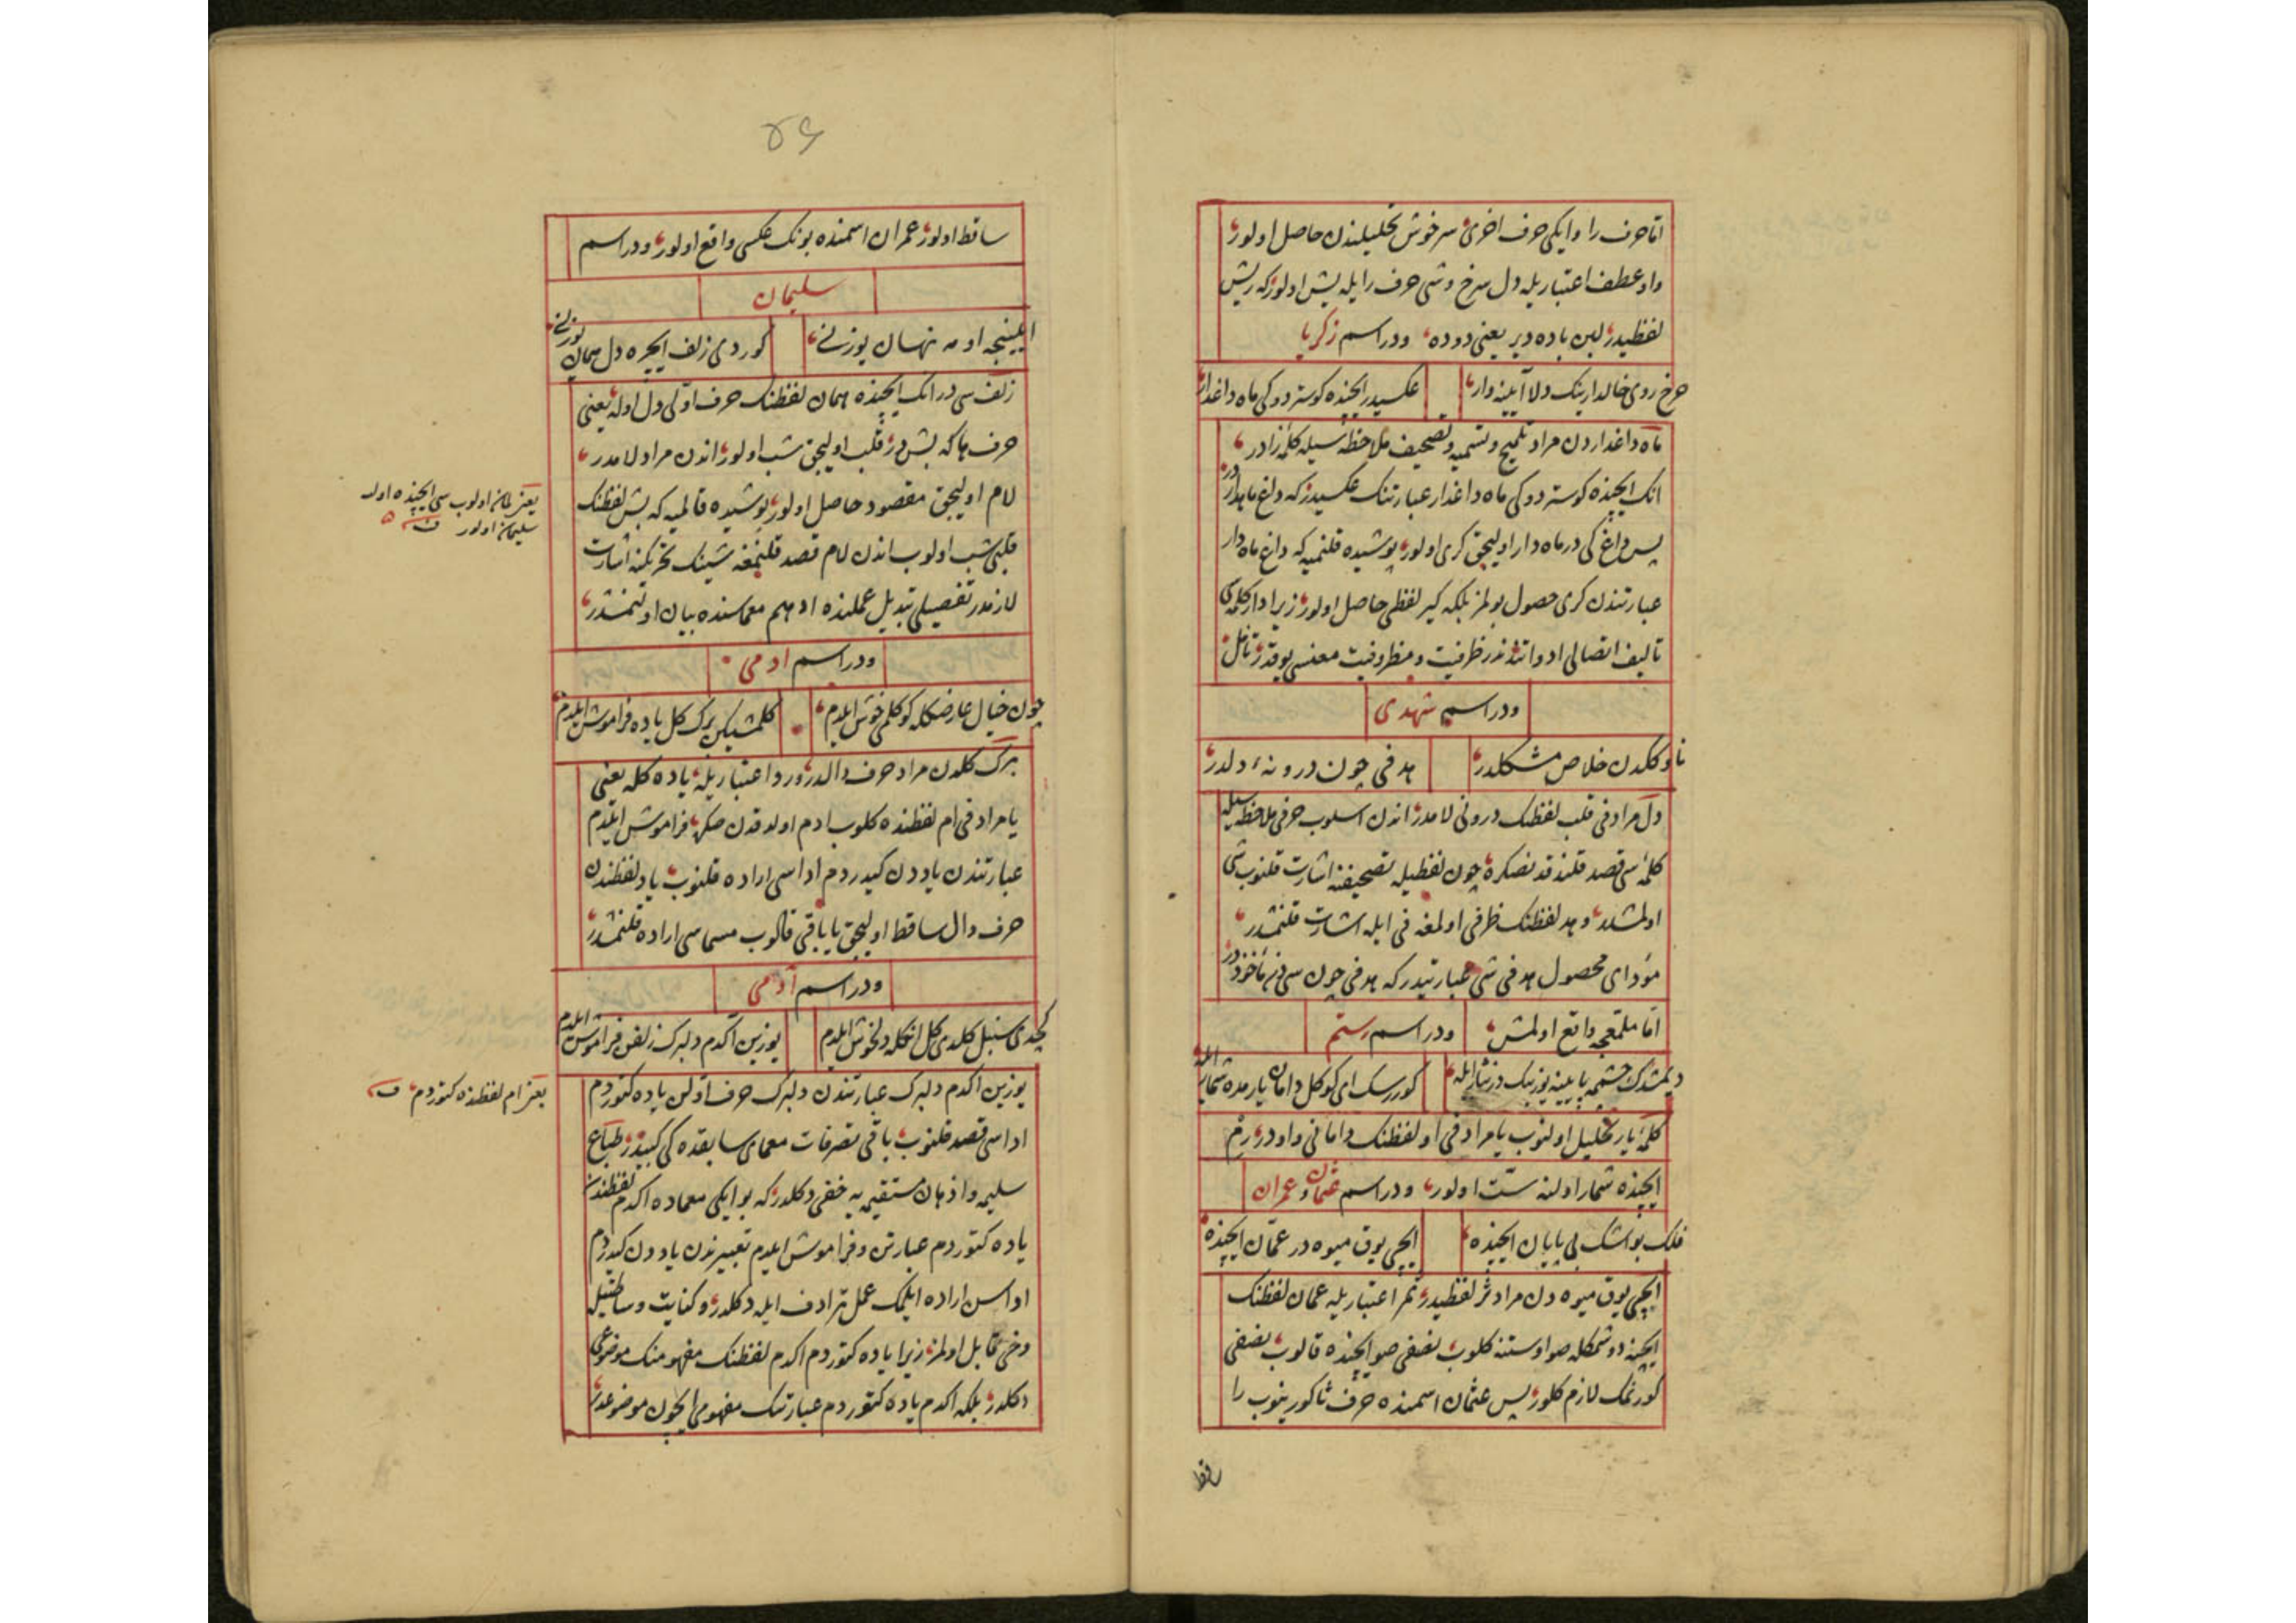 اما حرف را وایکی حرف اخری سرخوش تحلیلندن حاصل اولور
واو عطف اعتباریله دل سرخ وشی حرف را یله یش اولور که ریش
لفظیدر لبن باده دیر یعنی دوده ودراسم زکریا
خالدارینک دلا آیینه وار عکسیدر ایچنده کوستردوکی ماه داغدار
ماه داغداردن مراد تلمیح وتسمیه وتصحیف ملاحظه سیله کلمهٔ زادر
انک ایچنده کوستردوکی ماه داغدار عبارتنک عکسیدر که داغ ماهداردر
پس داغ کی در ماه دار اولیجق کری اولور پوشیده قلنمیه که داغ ماه دار
عبارتندن کری حصول بولمز بلکه کیر لفظی حاصل اولور زیرا دار کلمه سی
تالیف اتصالی ادواتندندر ظرفیت ومظروفیت معنسی یوقدر تامل
ودراسم شهدی
ناوککدن خلاص مشکلدر هدفی چون درونهٔ دلدر
دل مرادفی قلب لفظنک درونی لامدر اندن اسلوب حرفی ملاحظه سیله
کلمهٔ سی قصد قلندقدنصکره چون لفظیله تصحیفنه اشارت قلنوب شی
اولمشدر وهد لفظنک ظرفی اولمغه فی ایله اشارت قلنمشدر
مؤدای محصول هدفی شی عبارتیدر که هدفی چون سی دن مأخوذدر
اما ملتمعجه واقع اولمش ودراسم رستم
چشمه یا یینه یوزینک ایله کوررسک ای کوکل دامان یارمده شمار ایله
کلمهٔ یار تحلیل اولنوب یا مرادفی او لفظنک دامانی واودر رم
ایچنده شمار اولنه ست اولور ودراسم عثمان وعمران
فلک بواشک بی پایان ایچنده ایچی یوق میوه در عمان ایچنده
ایچی یوق میوه دن مراد ثمر لفظیدر ثمر اعتباریله عمان لفظنک
ایچنه دوشمکله صو اوستنه کلوب نصفی صو ایچنده قالوب نصفی
کورنمک لازم کلور پس عثمان اسمنده حرف ثا کورینوب را
ساقط
۵۶
ساقط اولور عمران اسمنده بونک عکسی واقع اولور ودراسم
سلیمان
ایلینجه اومه نهان یوزنی کوردی زلف ایچره دل همان یوزنی
زلف سی در انک ایچنده همان لفظنک حرف اولی دل اوله یعنی
حرف ها که بش در قلب اولیجق شب اولور اندن مراد لامدر
لام اولیجق مقصود حاصل اولور پوشیده قالمیه که بش لفظنک
قلبی شب اولوب اندن لام قصد قلنمغه شینک تحریکنه اشارت
لازمدر تفصیلی تبدیل عملنده ادهم معماسنده بیان اولنمشدر
یعنی لمان اولوب سی ایچنده اوله
سلیمان اولور
ودراسم ادمی
چون خیال عارضکله کوکلمی خوش ایلدم کلمشیکن برک کل یاده فراموش ایلدم
برک کلدن مراد حرف دالدر ورد اعتباریله یاده کله یعنی
یا مرادفی ام لفظنده کلوب ادم اولدقدن صکره فراموش ایلدم
عبارتندن یاددن کیدردم اداسی اراده قلنوب یاد لفظندن
حرف دال ساقط اولیجق یا باقی قالوب مسماسی اراده قلنمشدر
ودراسم آدمی
کچدی سنبل کلدی کل انکله دلخوش ایلدم یوزین اکدم دلبرک زلفن فراموش ایلدم
یوزین اکدم دلبرک عبارتندن دلبرک حرف اولن یاده کتوردم
اداسی قصد قلنوب باقی تصرفات معمای سابقده کی کبیدر طباع
سلیمه واذهان مستقیمه یه خفی دکلدر که بو ایکی معماده اکدم لفظندن
یاده کتوردم عبارتن وفراموش ایلدم تعبیرندن یاددن کیدردم
اداسن اراده ایلمک عمل ترادف ایله دکلدر وکنایت وساطتیله
دخی قابل اولمز زیرا یاده کتوردم اکدم لفظنک مفهومنک موضوعی
دکلدر بلکه اکدم یاده کتوردم عبارتنک مفهومی ایچون موضوعدر
یعنی ام لفظنده کتوردم